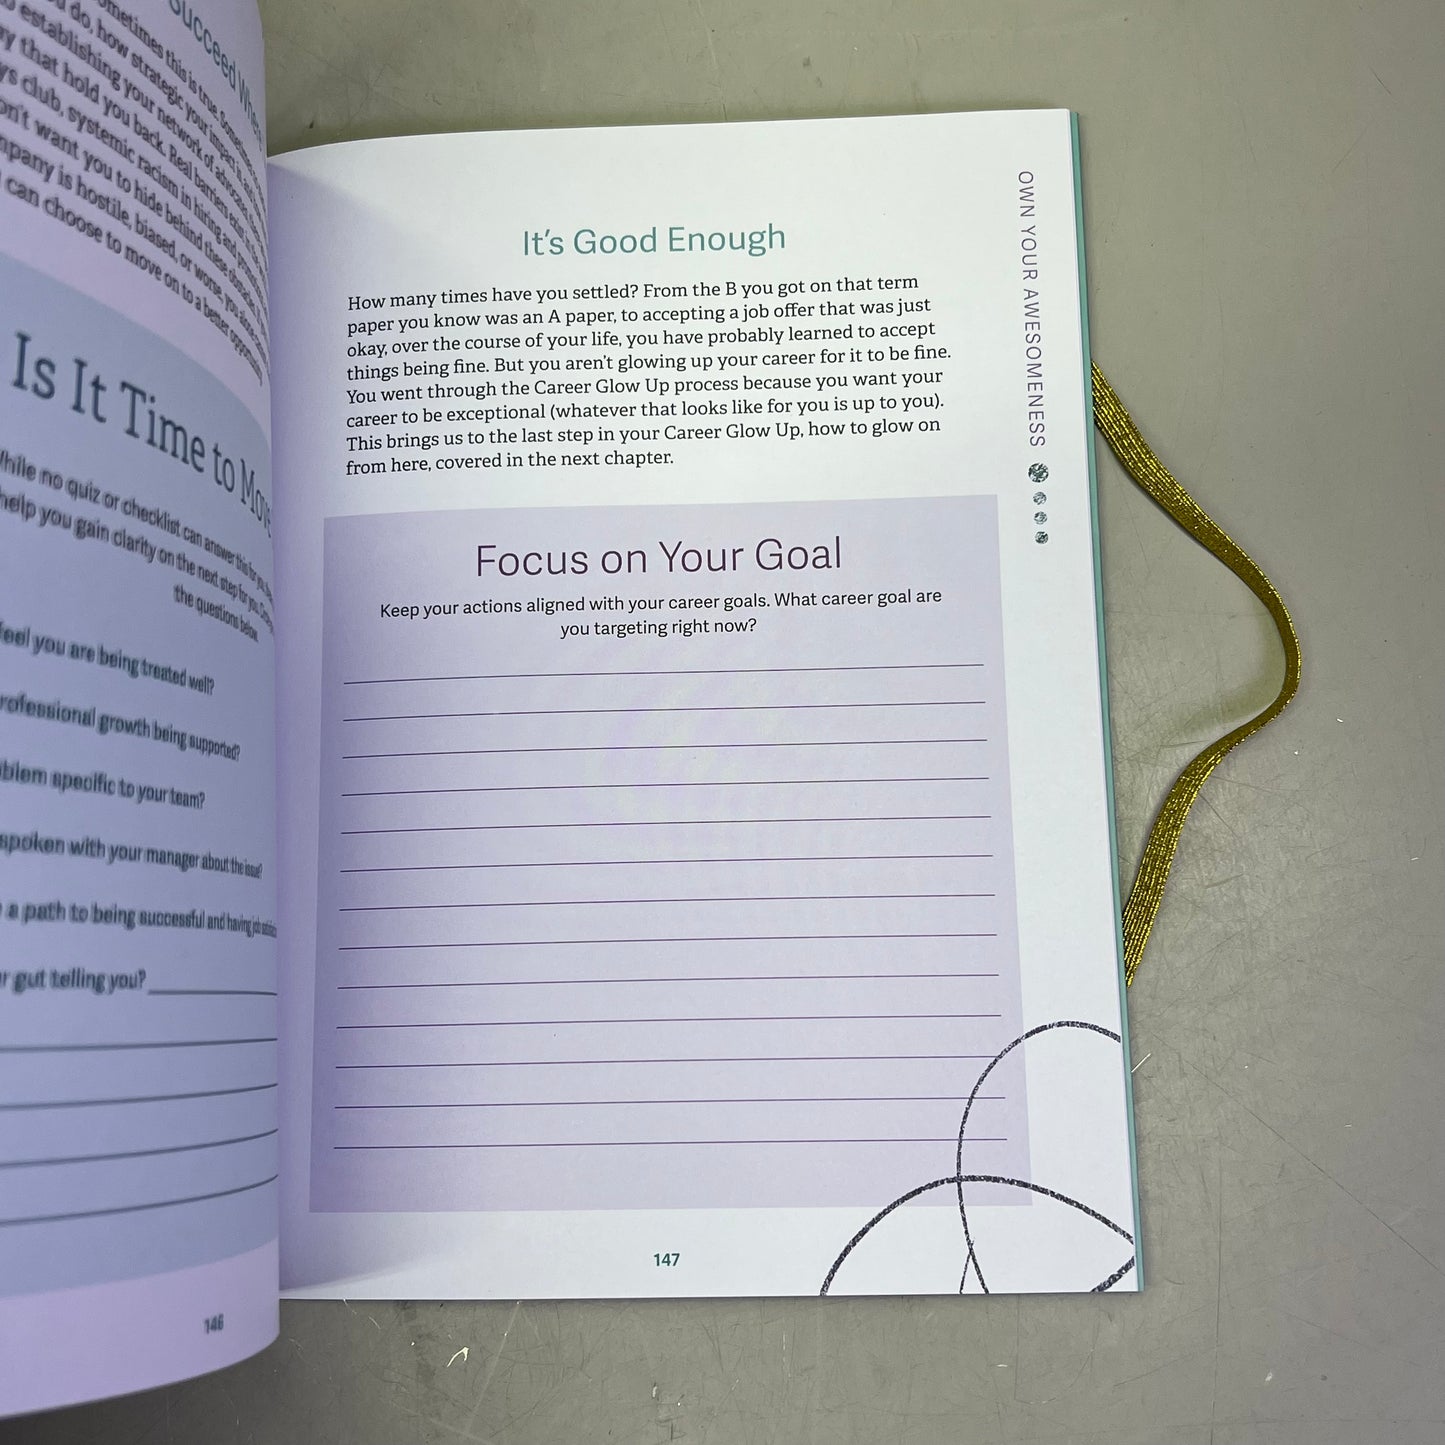 Succeed Where
ometimes this is true. Sometimes
do, how strategic your impact is, and
establishing your network of advocates, there
y that hold you back. Real barriers exist in the
ys club, systemic racism in hiring and
on't want you to hide behind these obstacles.
mpany is hostile, biased, or worse, you alone
can choose to move on to a better opportunity
Is It Time to Move
While no quiz or checklist can answer this for you,
help you gain clarity on the next step for you.
the questions below.
feel you are being treated well?
rofessional growth being supported?
oblem specific to your team?
spoken with your manager about the issue?
a path to being successful and having job
r gut telling you?
146
It's Good Enough
How many times have you settled? From the B you got on that term
paper you know was an A paper, to accepting a job offer that was just
okay, over the course of your life, you have probably learned to accept
things being fine. But you aren't glowing up your career for it to be fine.
You went through the Career Glow Up process because you want your
career to be exceptional (whatever that looks like for you is up to you).
This brings us to the last step in your Career Glow Up, how to glow on
from here, covered in the next chapter.
Focus on Your Goal
Keep your actions aligned with your career goals. What career goal are
you targeting right now?
147
OWN YOUR AWESOMENESS